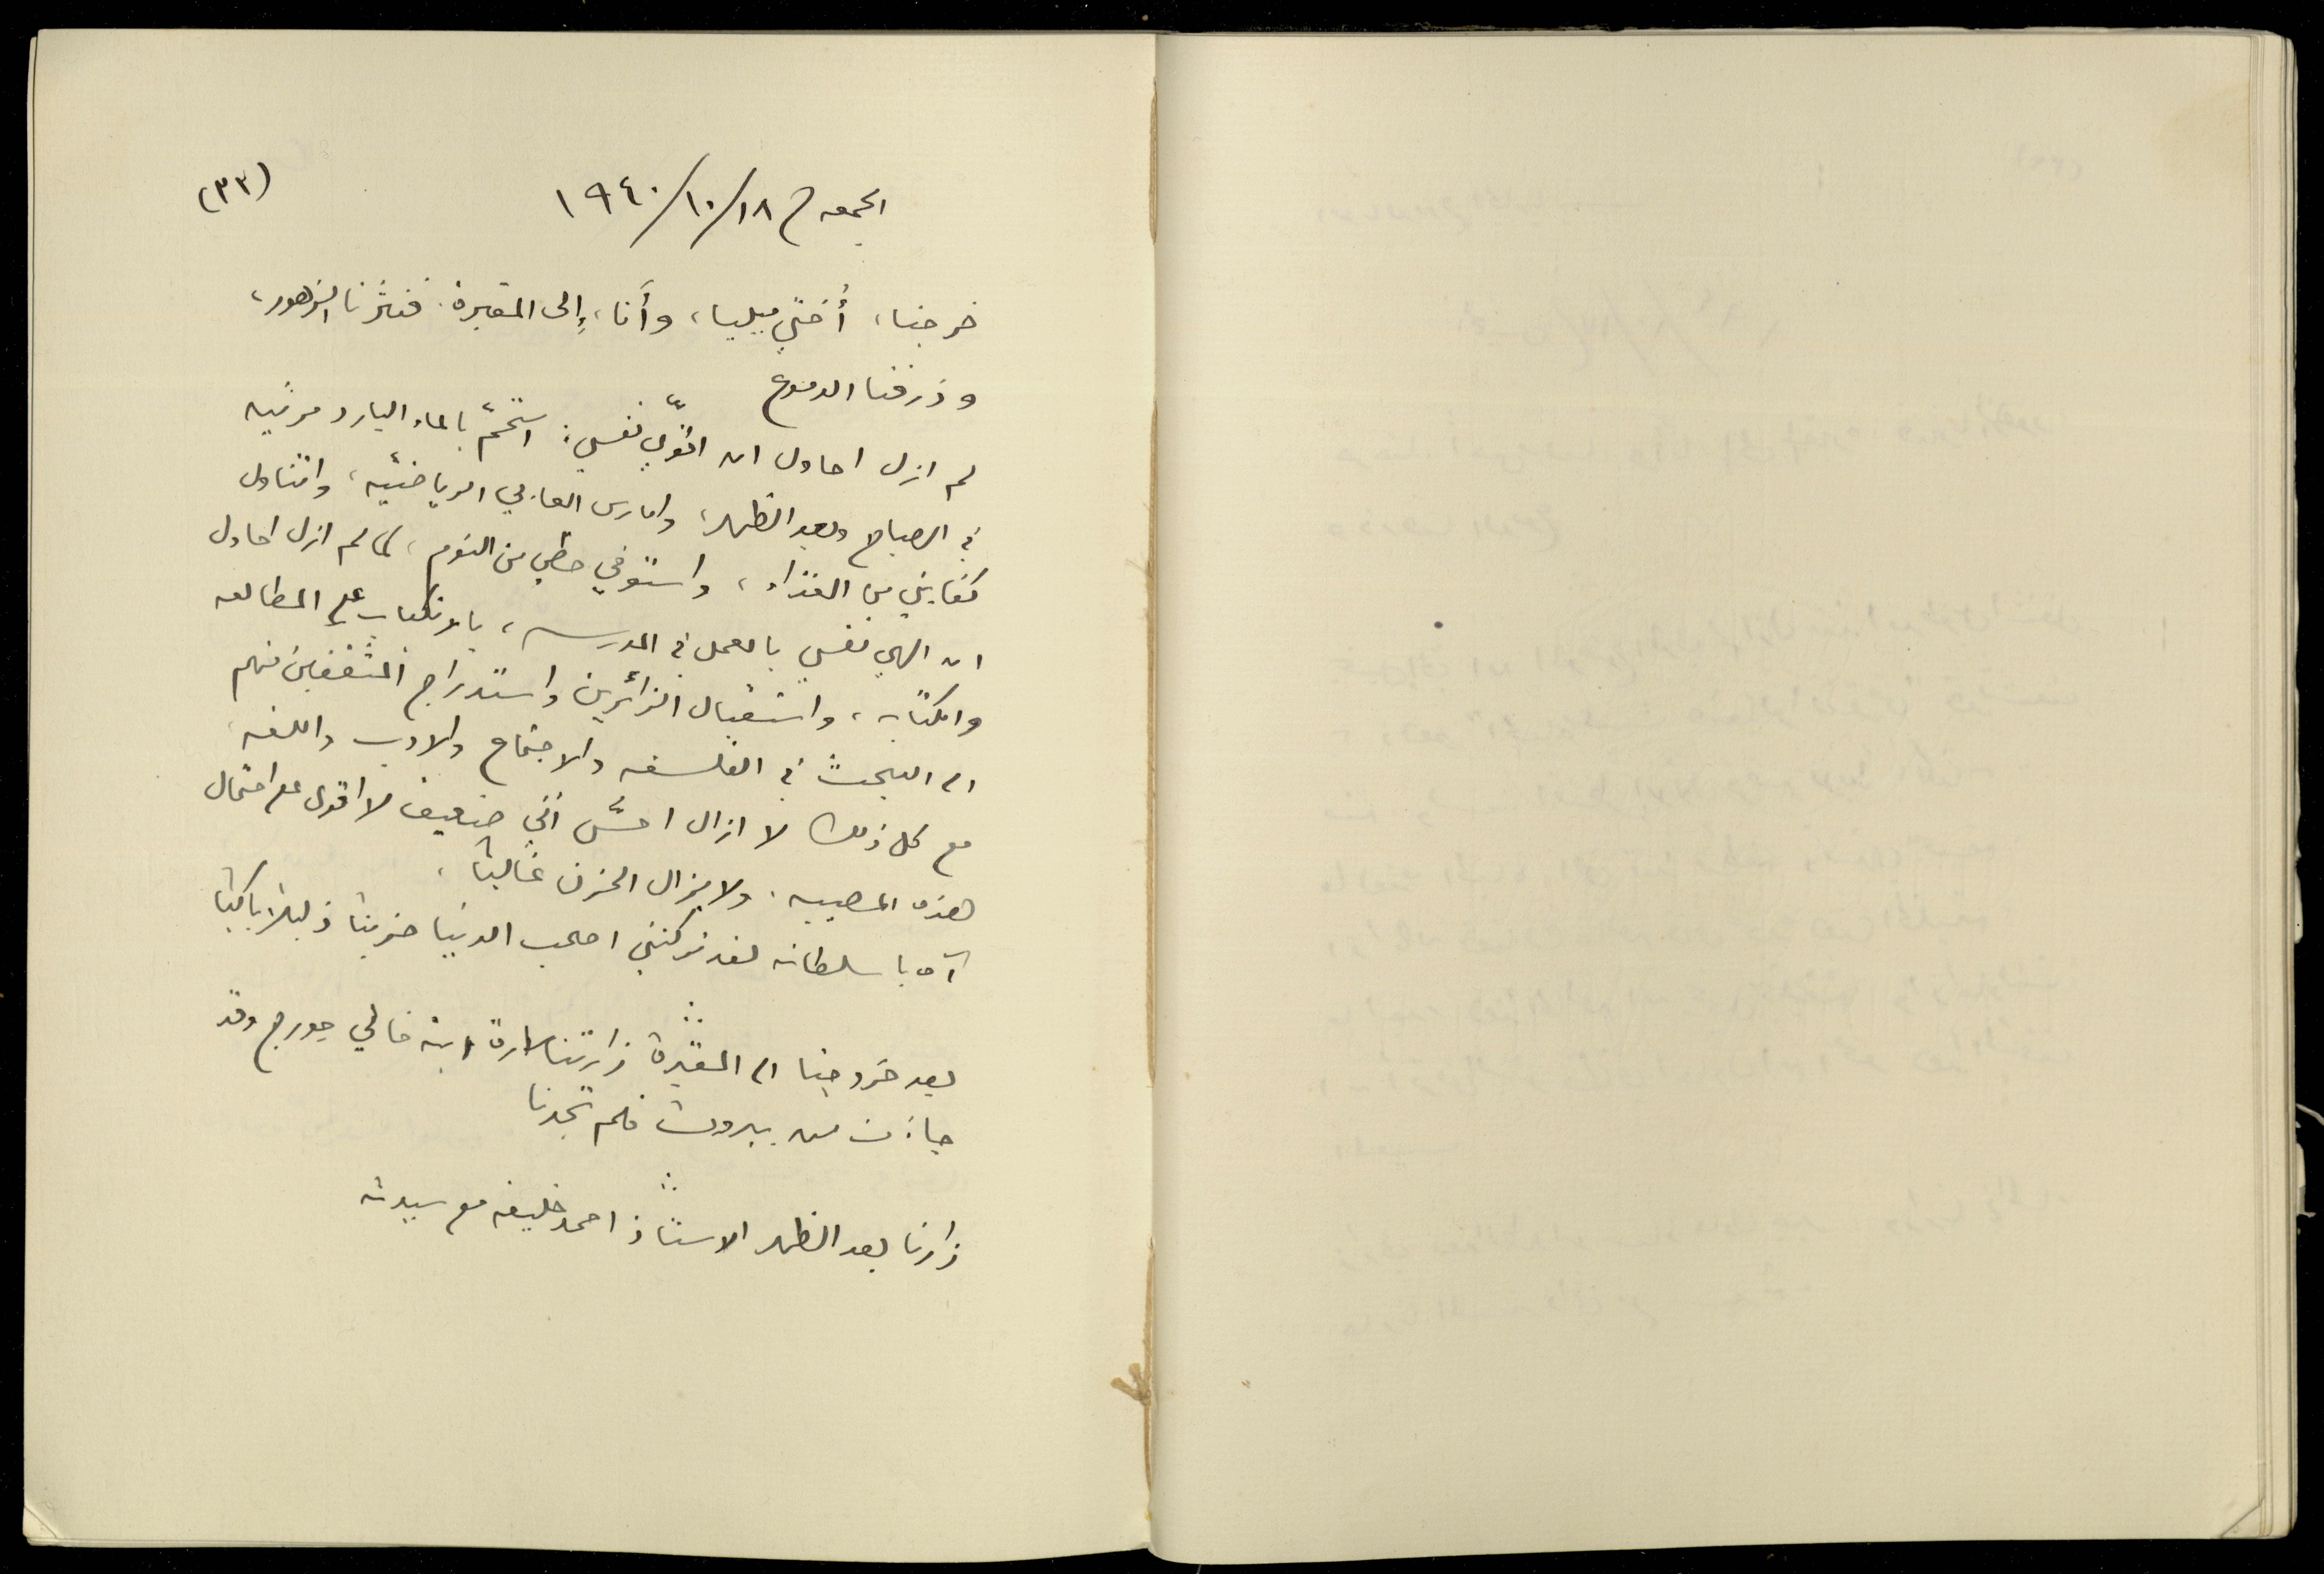 (٣٢)
الجمعه في ١٨/١٠/١٩٤٠
خرجنا، أختي ميليا، وأنا، إلى المقبرة. فنثرنا الزهور،
وذرفنا الدموع
لم ازل احاول ان اقوّي نفسي: استحمّ بالماء البارد مرتين
في الصباح وبعد الظهر، وامارس العابي الرياضيّة، واتناول
كفايتي من الغذاء، واستوفي حظي من النوم، كما لم ازل احاول
ان الهي نفسي بالعمل في المدرسه، بالانكباب على المطالعه
والكتابه، واستقبال الزائرين واستدراج المثقفين منهم
الى البحث في الفلسفه والاجتماع والادب واللغه،
مع كل ذلك لا ازال احسّ أني ضعيف لا اقوى على احتمال
هذه المصيبه. ولا يزال الحزن غالبًا،
آه يا سلطانه لقد تركتني اصحب الدنيا حزينًا ذليلًا باكيًا
بعد خروجنا الى المقبرة زارتنا سارة ابنة خالي جورج وقد
جاءت من بيروت فلم تجدنا
زارنا بعد الظهر الاستاذ احمد خليفه مع سيدته